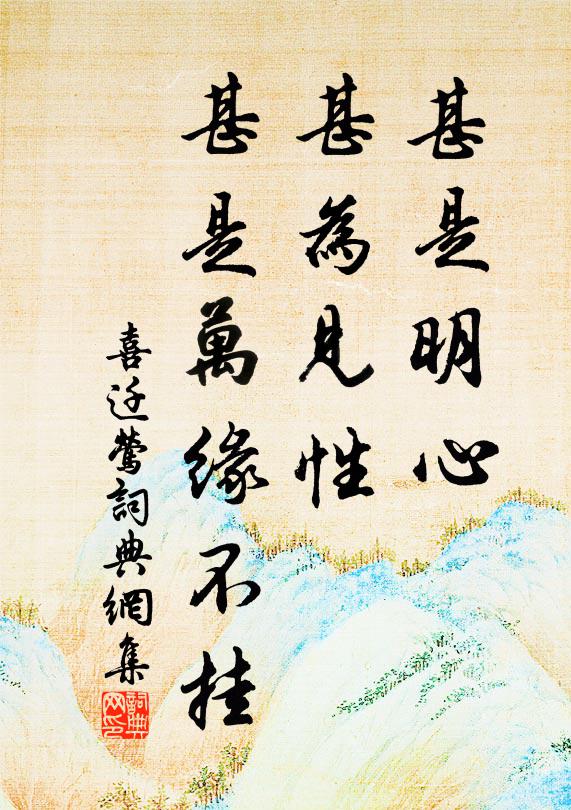 甚是明心
甚為見性
甚是萬緣不挂
喜迁鶯詞典網集
詞典網印